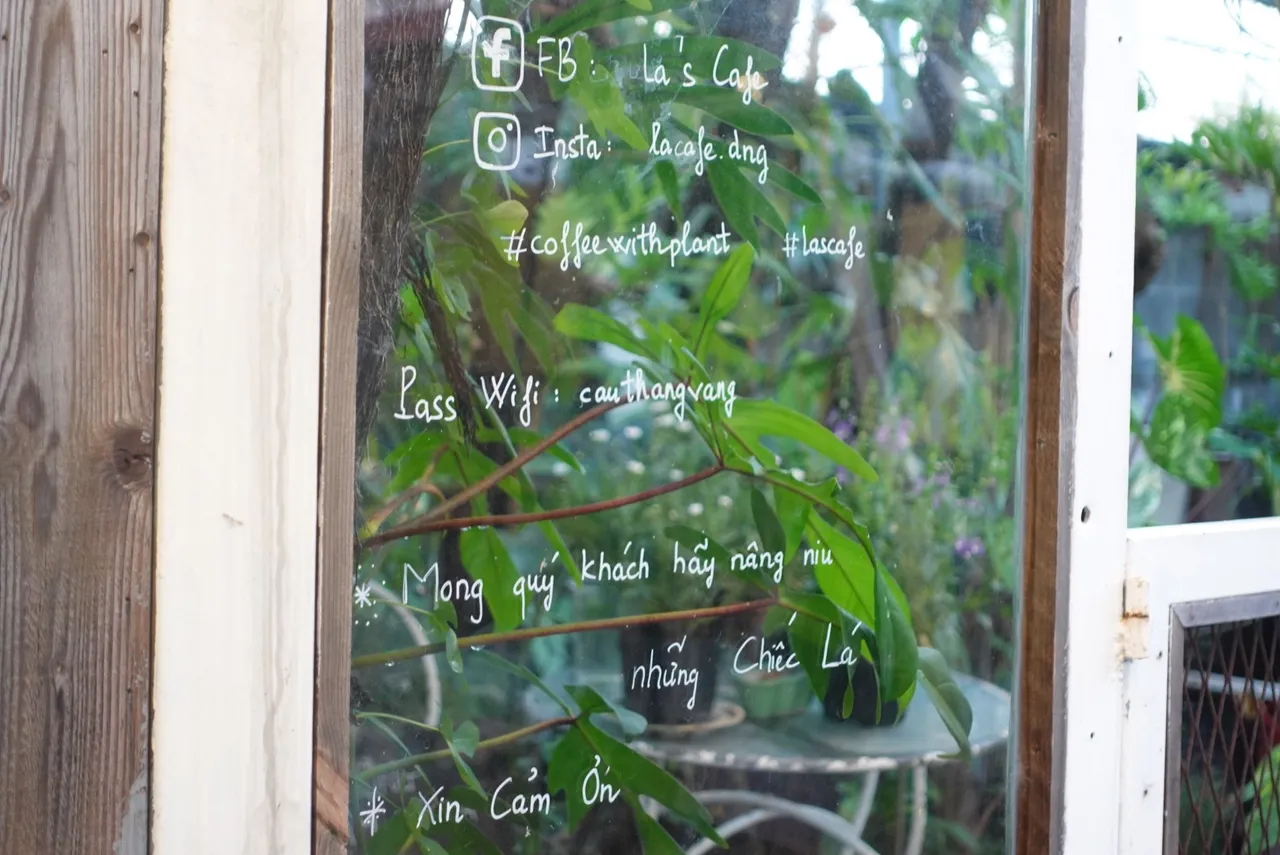 FB: Lả's Cafe
Insta: lacafe.dng
#coffeewithplant #lascafe
Pass Wifi: cauthangvang
* Mong quý khách hãy nâng niu
những Chiếc Lá
* Xin Cảm Ơn